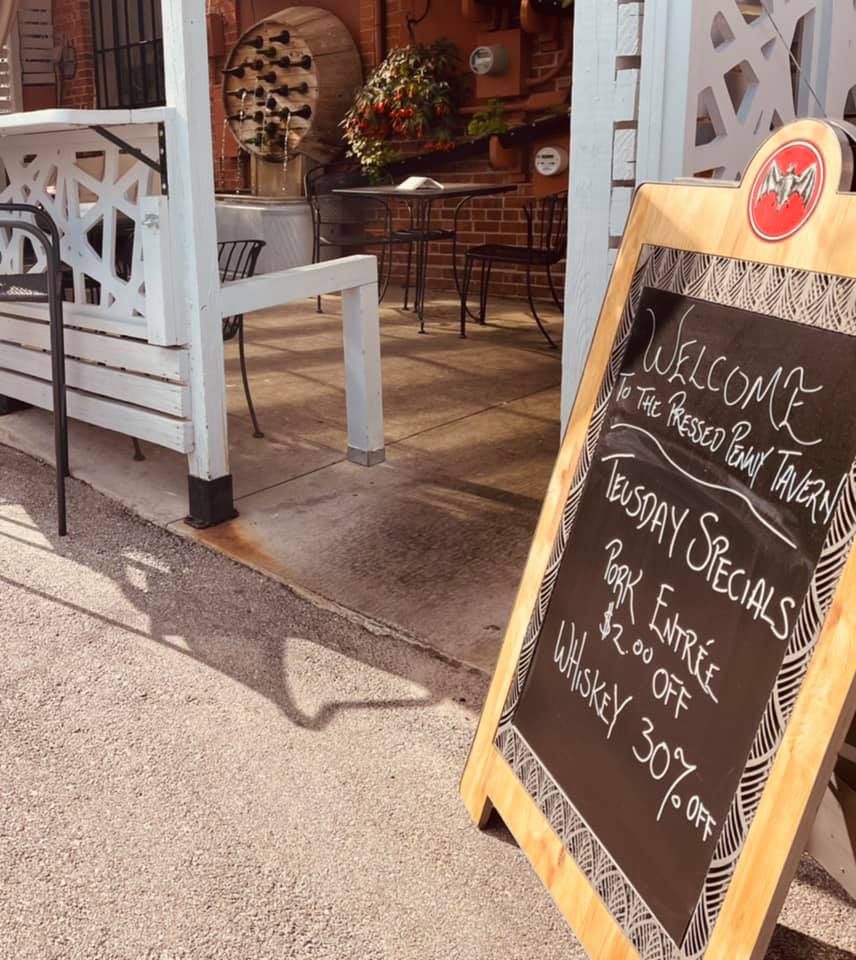 WELCOME
TO THE PRESSED PENNY TAVERN
TEUSDAY SPECIALS
PORK ENTRÉE
$2.00 OFF
WHISKEY 30% OFF